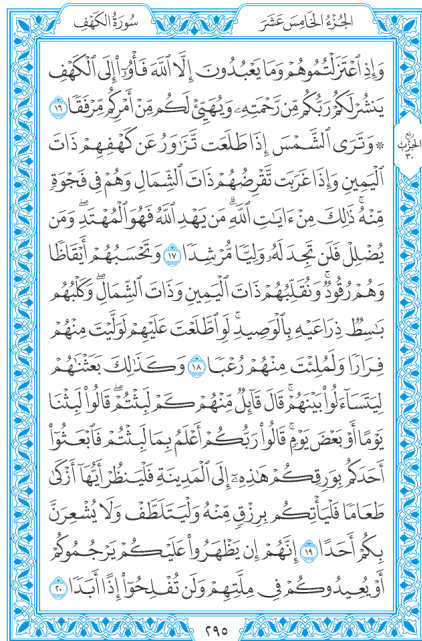 الجُزْءُ الخَامِسَ عَشَرَ
سُورَةُ الكَهْفِ
وَإِذِ ٱعْتَزَلْتُمُوهُمْ وَمَا يَعْبُدُونَ إِلَّا ٱللَّهَ فَأْوُۥٓا۟ إِلَى ٱلْكَهْفِ
يَنشُرْ لَكُمْ رَبُّكُم مِّن رَّحْمَتِهِۦ وَيُهَيِّئْ لَكُم مِّنْ أَمْرِكُم مِّرْفَقًا ١٦
۞ وَتَرَى ٱلشَّمْسَ إِذَا طَلَعَت تَّزَٰوَرُ عَن كَهْفِهِمْ ذَاتَ
ٱلْيَمِينِ وَإِذَا غَرَبَت تَّقْرِضُهُمْ ذَاتَ ٱلشِّمَالِ وَهُمْ فِى فَجْوَةٍ
مِّنْهُ ۚ ذَٰلِكَ مِنْ ءَايَٰتِ ٱللَّهِ ۗ مَن يَهْدِ ٱللَّهُ فَهُوَ ٱلْمُهْتَدِ ۖ وَمَن
يُضْلِلْ فَلَن تَجِدَ لَهُۥ وَلِيًّا مُّرْشِدًا ١٧ وَتَحْسَبُهُمْ أَيْقَاظًا
وَهُمْ رُقُودٌ ۚ وَنُقَلِّبُهُمْ ذَاتَ ٱلْيَمِينِ وَذَاتَ ٱلشِّمَالِ ۖ وَكَلْبُهُم
بَٰسِطٌ ذِرَاعَيْهِ بِٱلْوَصِيدِ ۚ لَوِ ٱطَّلَعْتَ عَلَيْهِمْ لَوَلَّيْتَ مِنْهُمْ
فِرَارًا وَلَمُلِئْتَ مِنْهُمْ رُعْبًا ١٨ وَكَذَٰلِكَ بَعَثْنَٰهُمْ
لِيَتَسَآءَلُوا۟ بَيْنَهُمْ ۚ قَالَ قَآئِلٌ مِّنْهُمْ كَمْ لَبِثْتُمْ ۖ قَالُوا۟ لَبِثْنَا
يَوْمًا أَوْ بَعْضَ يَوْمٍ ۚ قَالُوا۟ رَبُّكُمْ أَعْلَمُ بِمَا لَبِثْتُمْ فَٱبْعَثُوٓا۟
أَحَدَكُم بِوَرِقِكُمْ هَٰذِهِۦٓ إِلَى ٱلْمَدِينَةِ فَلْيَنظُرْ أَيُّهَآ أَزْكَىٰ
طَعَامًا فَلْيَأْتِكُم بِرِزْقٍ مِّنْهُ وَلْيَتَلَطَّفْ وَلَا يُشْعِرَنَّ
بِكُمْ أَحَدًا ١٩ إِنَّهُمْ إِن يَظْهَرُوا۟ عَلَيْكُمْ يَرْجُمُوكُمْ
أَوْ يُعِيدُوكُمْ فِى مِلَّتِهِمْ وَلَن تُفْلِحُوٓا۟ إِذًا أَبَدًا ٢٠
ربع
الحزب
٣٠
٢٩٥